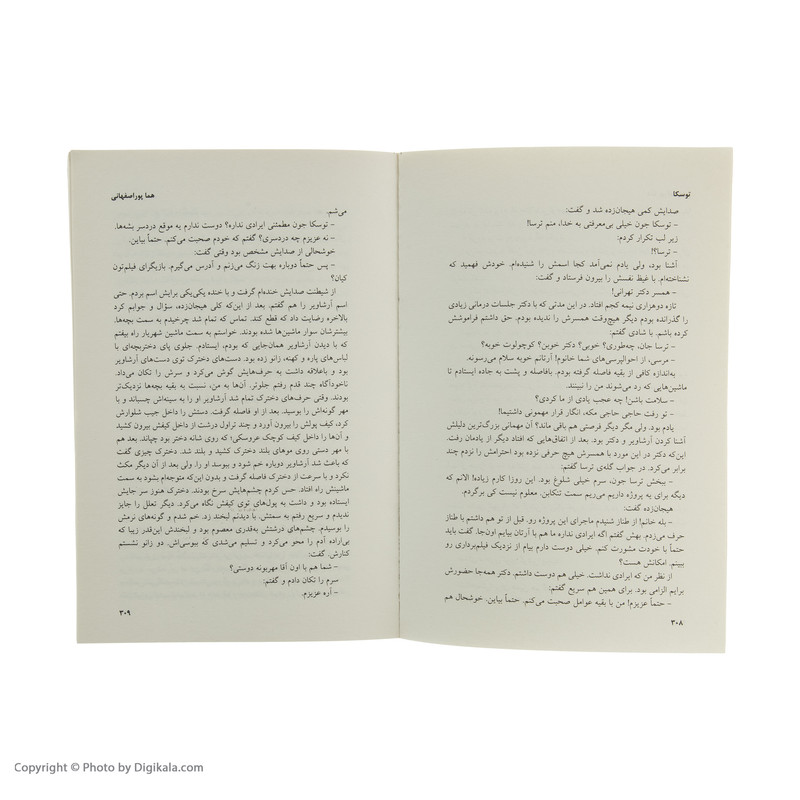 توسکا
صدایش کمی هیجان‌زده شد و گفت:
- توسکا جون خیلی بی‌معرفتی به خدا، منم ترسا!
زیر لب تکرار کردم:
- ترسا؟!
آشنا بود، ولی یادم نمی‌آمد کجا اسمش را شنیده‌ام. خودش فهمید که
نشناخته‌ام. با غیظ نفسش را بیرون فرستاد و گفت:
- همسر دکتر تهرانی!
تازه دوهزاری نیمه کجم افتاد. در این مدتی که با دکتر جلسات درمانی زیادی
را گذرانده بودم دیگر هیچ‌وقت همسرش را ندیده بودم. حق داشتم فراموشش
کرده باشم. با شادی گفتم:
- ترسا جان، چه‌طوری؟ خوبی؟ دکتر خوبن؟ کوچولوت خوبه؟
- مرسی، از احوالپرسی‌های شما خانوم! آرتانم خوبه سلام می‌رسونه.
به‌اندازه کافی از بقیه فاصله گرفته بودم. بافاصله و پشت به جاده ایستادم تا
ماشین‌هایی که رد می‌شوند من را نبینند.
- سلامت باشن! چه عجب یادی از ما کردی؟
- تو رفت حاجی حاجی مکه، انگار قرار مهمونی داشتیما!
یادم بود. ولی مگر دیگر فرصتی هم باقی ماند؟ آن مهمانی بزرگ‌ترین دلیلش
آشنا کردن آرشاویر و دکتر بود. بعد از اتفاق‌هایی که افتاد دیگر از یادمان رفت.
این‌که دکتر در این مورد با همسرش هیچ حرفی نزده بود احترامش را نزدم چند
برابر می‌کرد. در جواب گله‌ی ترسا گفتم:
- ببخش ترسا جون، سرم خیلی شلوغ بود. این روزا کارم زیاده! الانم که
دیگه برای یه پروژه داریم می‌ریم سمت تنکابن. معلوم نیست کی برگردم.
هیجان‌زده گفت:
- بله خانم! از طناز شنیدم ماجرای این پروژه رو. قبل از تو هم داشتم با طناز
حرف می‌زدم. بهش گفتم اگه ایرادی نداره ما هم با آرتان بیایم اون‌جا. گفت باید
حتماً با خودت مشورت کنم. خیلی دوست دارم بیام از نزدیک فیلم‌برداری رو
ببینم. امکانش هست؟
از نظر من که ایرادی نداشت. خیلی هم دوست داشتم. دکتر همه‌جا حضورش
برایم الزامی بود. برای همین هم سریع گفتم:
- حتماً عزیزم! من با بقیه عوامل صحبت می‌کنم. حتماً بیاین. خوشحال هم
۳۰۸
هما پوراصفهانی
می‌شم.
- توسکا جون مطمئنی ایرادی نداره؟ دوست ندارم یه موقع دردسر بشه‌ها.
- نه عزیزم چه دردسری؟ گفتم که خودم صحبت می‌کنم. حتماً بیاین.
خوشحالی از صدایش مشخص بود وقتی گفت:
- پس حتماً دوباره بهت زنگ می‌زنم و آدرس می‌گیرم. بازیگرای فیلم‌تون
کیان؟
از شیطنت صدایش خنده‌ام گرفت و با خنده یکی‌یکی برایش اسم بردم. حتی
اسم آرشاویر را هم گفتم. بعد از این‌که کلی هیجان‌زده، سؤال و جوابم کرد
بالاخره رضایت داد که قطع کند. تماس که تمام شد چرخیدم به سمت بچه‌ها.
بیشترشان سوار ماشین‌ها شده بودند. خواستم به سمت ماشین شهریار راه بیفتم
که با دیدن آرشاویر همان‌جایی که بودم، ایستادم. جلوی پای دختربچه‌ای با
لباس‌های پاره و کهنه، زانو زده بود. دست‌های دخترک توی دست‌های آرشاویر
بود و باعلاقه داشت به حرف‌هایش گوش می‌کرد و سرش را تکان می‌داد.
ناخودآگاه چند قدم رفتم جلوتر. آن‌ها به من، نسبت به بقیه بچه‌ها نزدیک‌تر
بودند. وقتی حرف‌های دخترک تمام شد آرشاویر او را به سینه‌اش چسباند و با
مهر گونه‌اش را بوسید. بعد از او فاصله گرفت. دستش را داخل جیب شلوارش
کرد، کیف پولش را بیرون آورد و چند تراول درشت از داخل کیفش بیرون کشید
و آن‌ها را داخل کیف کوچک عروسکی؛ که روی شانه دختر بود چپاند. بعد هم
با مهر دستی روی موهای بلند دخترک کشید و بلند شد. دخترک چیزی گفت
که باعث شد آرشاویر دوباره خم شود و ببوسد او را. ولی بعد از آن دیگر مکث
نکرد و با سرعت از دخترک فاصله گرفت و بدون این‌که متوجه‌ام بشود به سمت
ماشینش راه افتاد. حس کردم چشم‌هایش سرخ بودند. دخترک هنوز سر جایش
ایستاده بود و داشت به پول‌های توی کیفش نگاه می‌کرد. دیگر تعلل را جایز
ندیدم و سریع رفتم به سمتش. با دیدنم لبخند زد. خم شدم و گونه‌های نرمش
را بوسیدم. چشم‌های درشتش به‌قدری معصوم بود و لبخندش این‌قدر زیبا که
بی‌اراده آدم را محو می‌کرد و تسلیم می‌شدی که ببوسی‌اش. دو زانو نشستم
کنارش. گفت:
- شما هم با اون آقا مهربونه دوستی؟
سرم را تکان دادم و گفتم:
- آره عزیزم.
۳۰۹
Copyright © Photo by Digikala.com